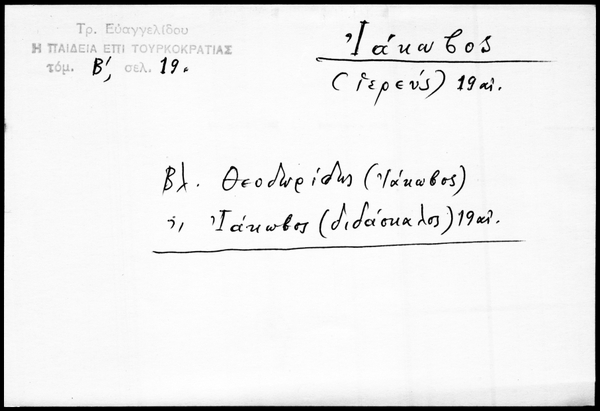 Τρ. Εὐαγγελίδου
Η ΠΑΙΔΕΙΑ ΕΠΙ ΤΟΥΡΚΟΚΡΑΤΙΑΣ
τόμ. Β', σελ. 19.
Ἰάκωβος
(ἱερεύς) 19 αἰ.
Βλ. Θεοδωρίδης (Ἰάκωβος)
ἤ, Ἰάκωβος (διδάσκαλος) 19 αἰ.